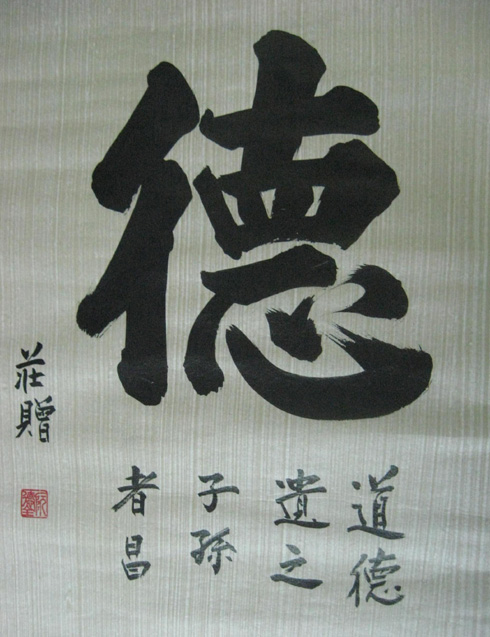 德
道德
遺之
子孫
者昌
莊贈